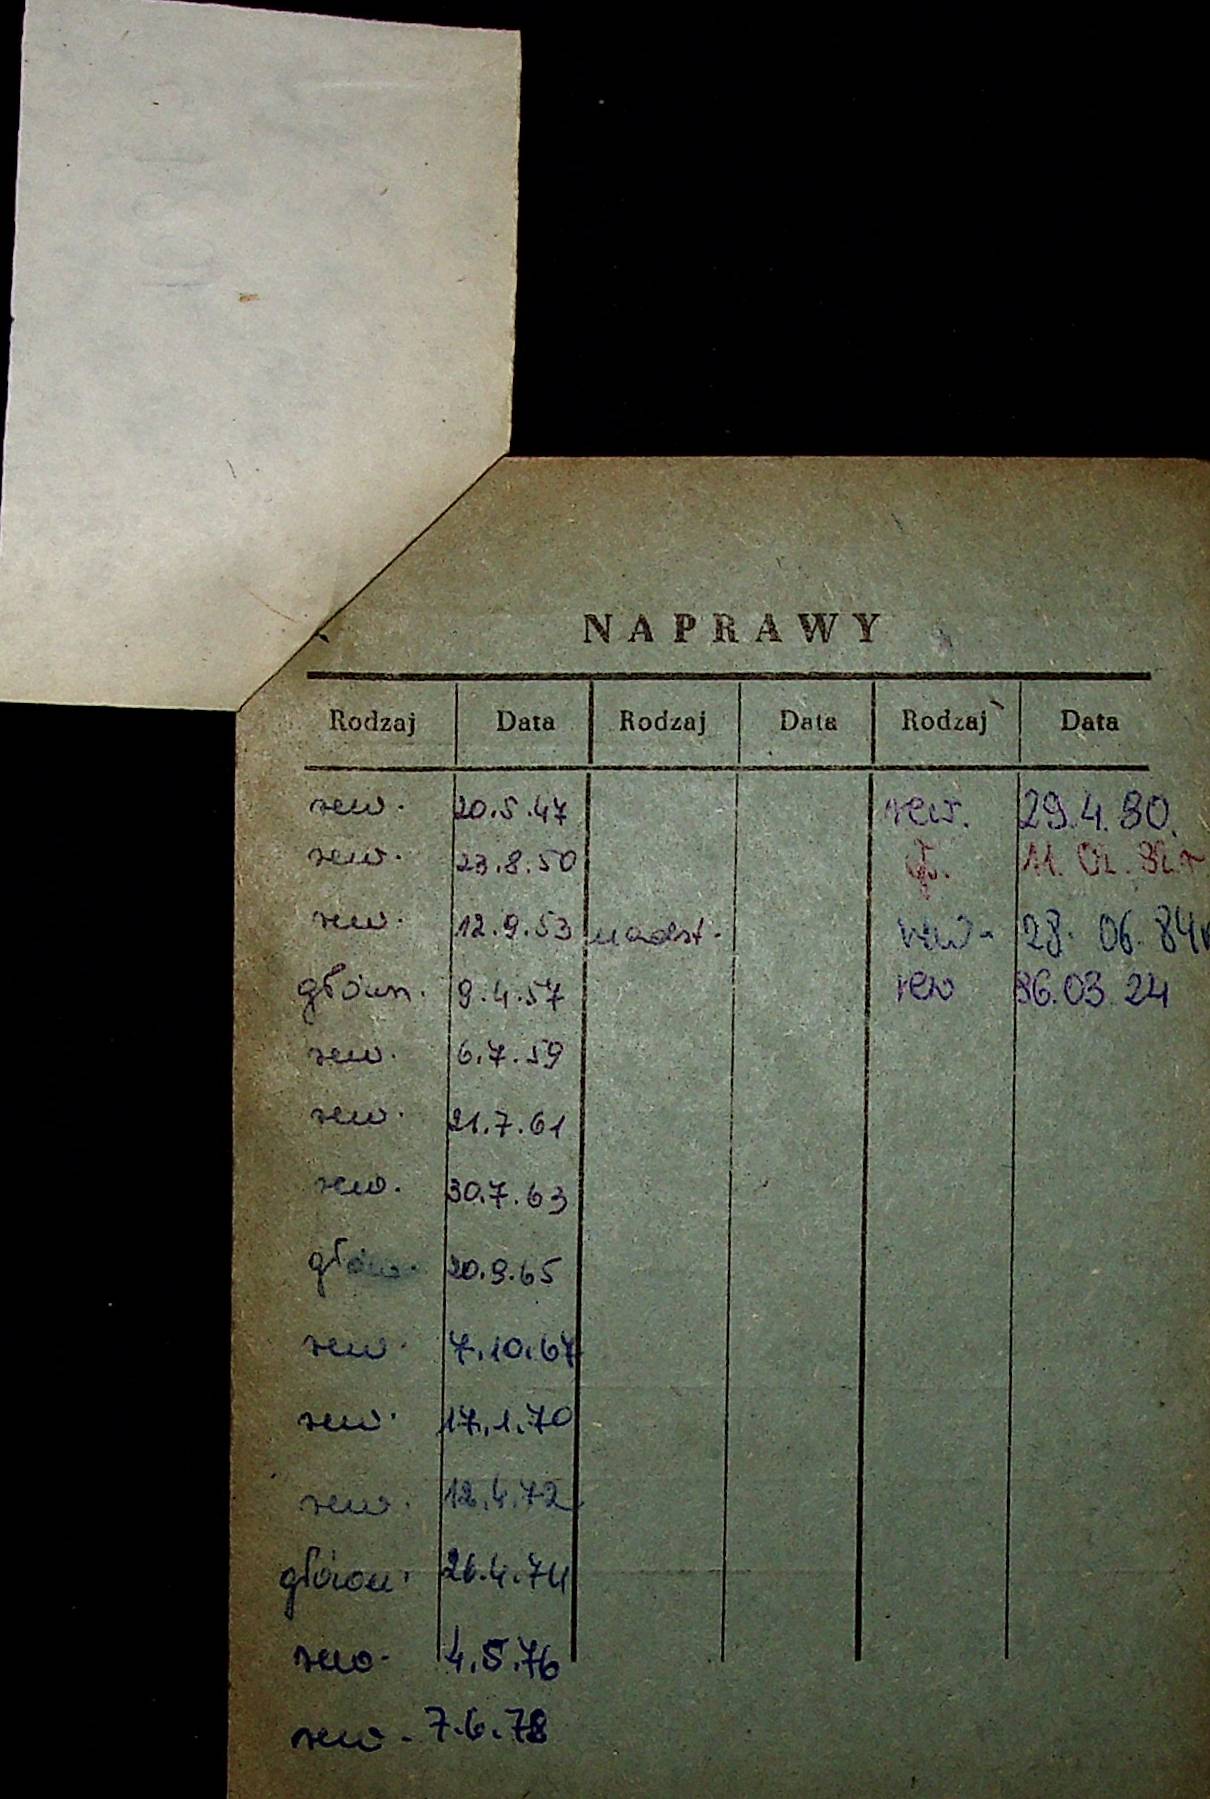 NAPRAWY
Rodzaj Data Rodzaj Data Rodzaj Data
rew. 20.5.47 rew. 29.4.80.
rew. 23.8.50 gł. 11.02.82r
rew. 12.9.53 nadst. rew. 28.06.84r
główn. 9.4.57 rew 86.03.24
rew. 6.7.59
rew. 21.7.61
rew. 30.7.63
główn. 20.9.65
rew. 7.10.67
rew. 17.1.70
rew. 12.4.72
główn. 26.4.74
rew. 4.5.76
rew. 7.6.78